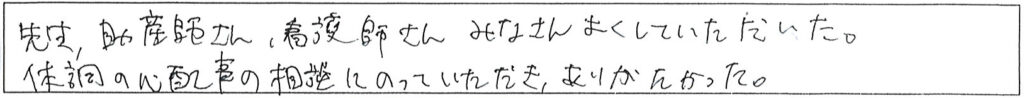 先生,助産師さん,看護師さん みなさんよくしていただいた。
体調の心配事の相談にのっていただき,ありがたかった。